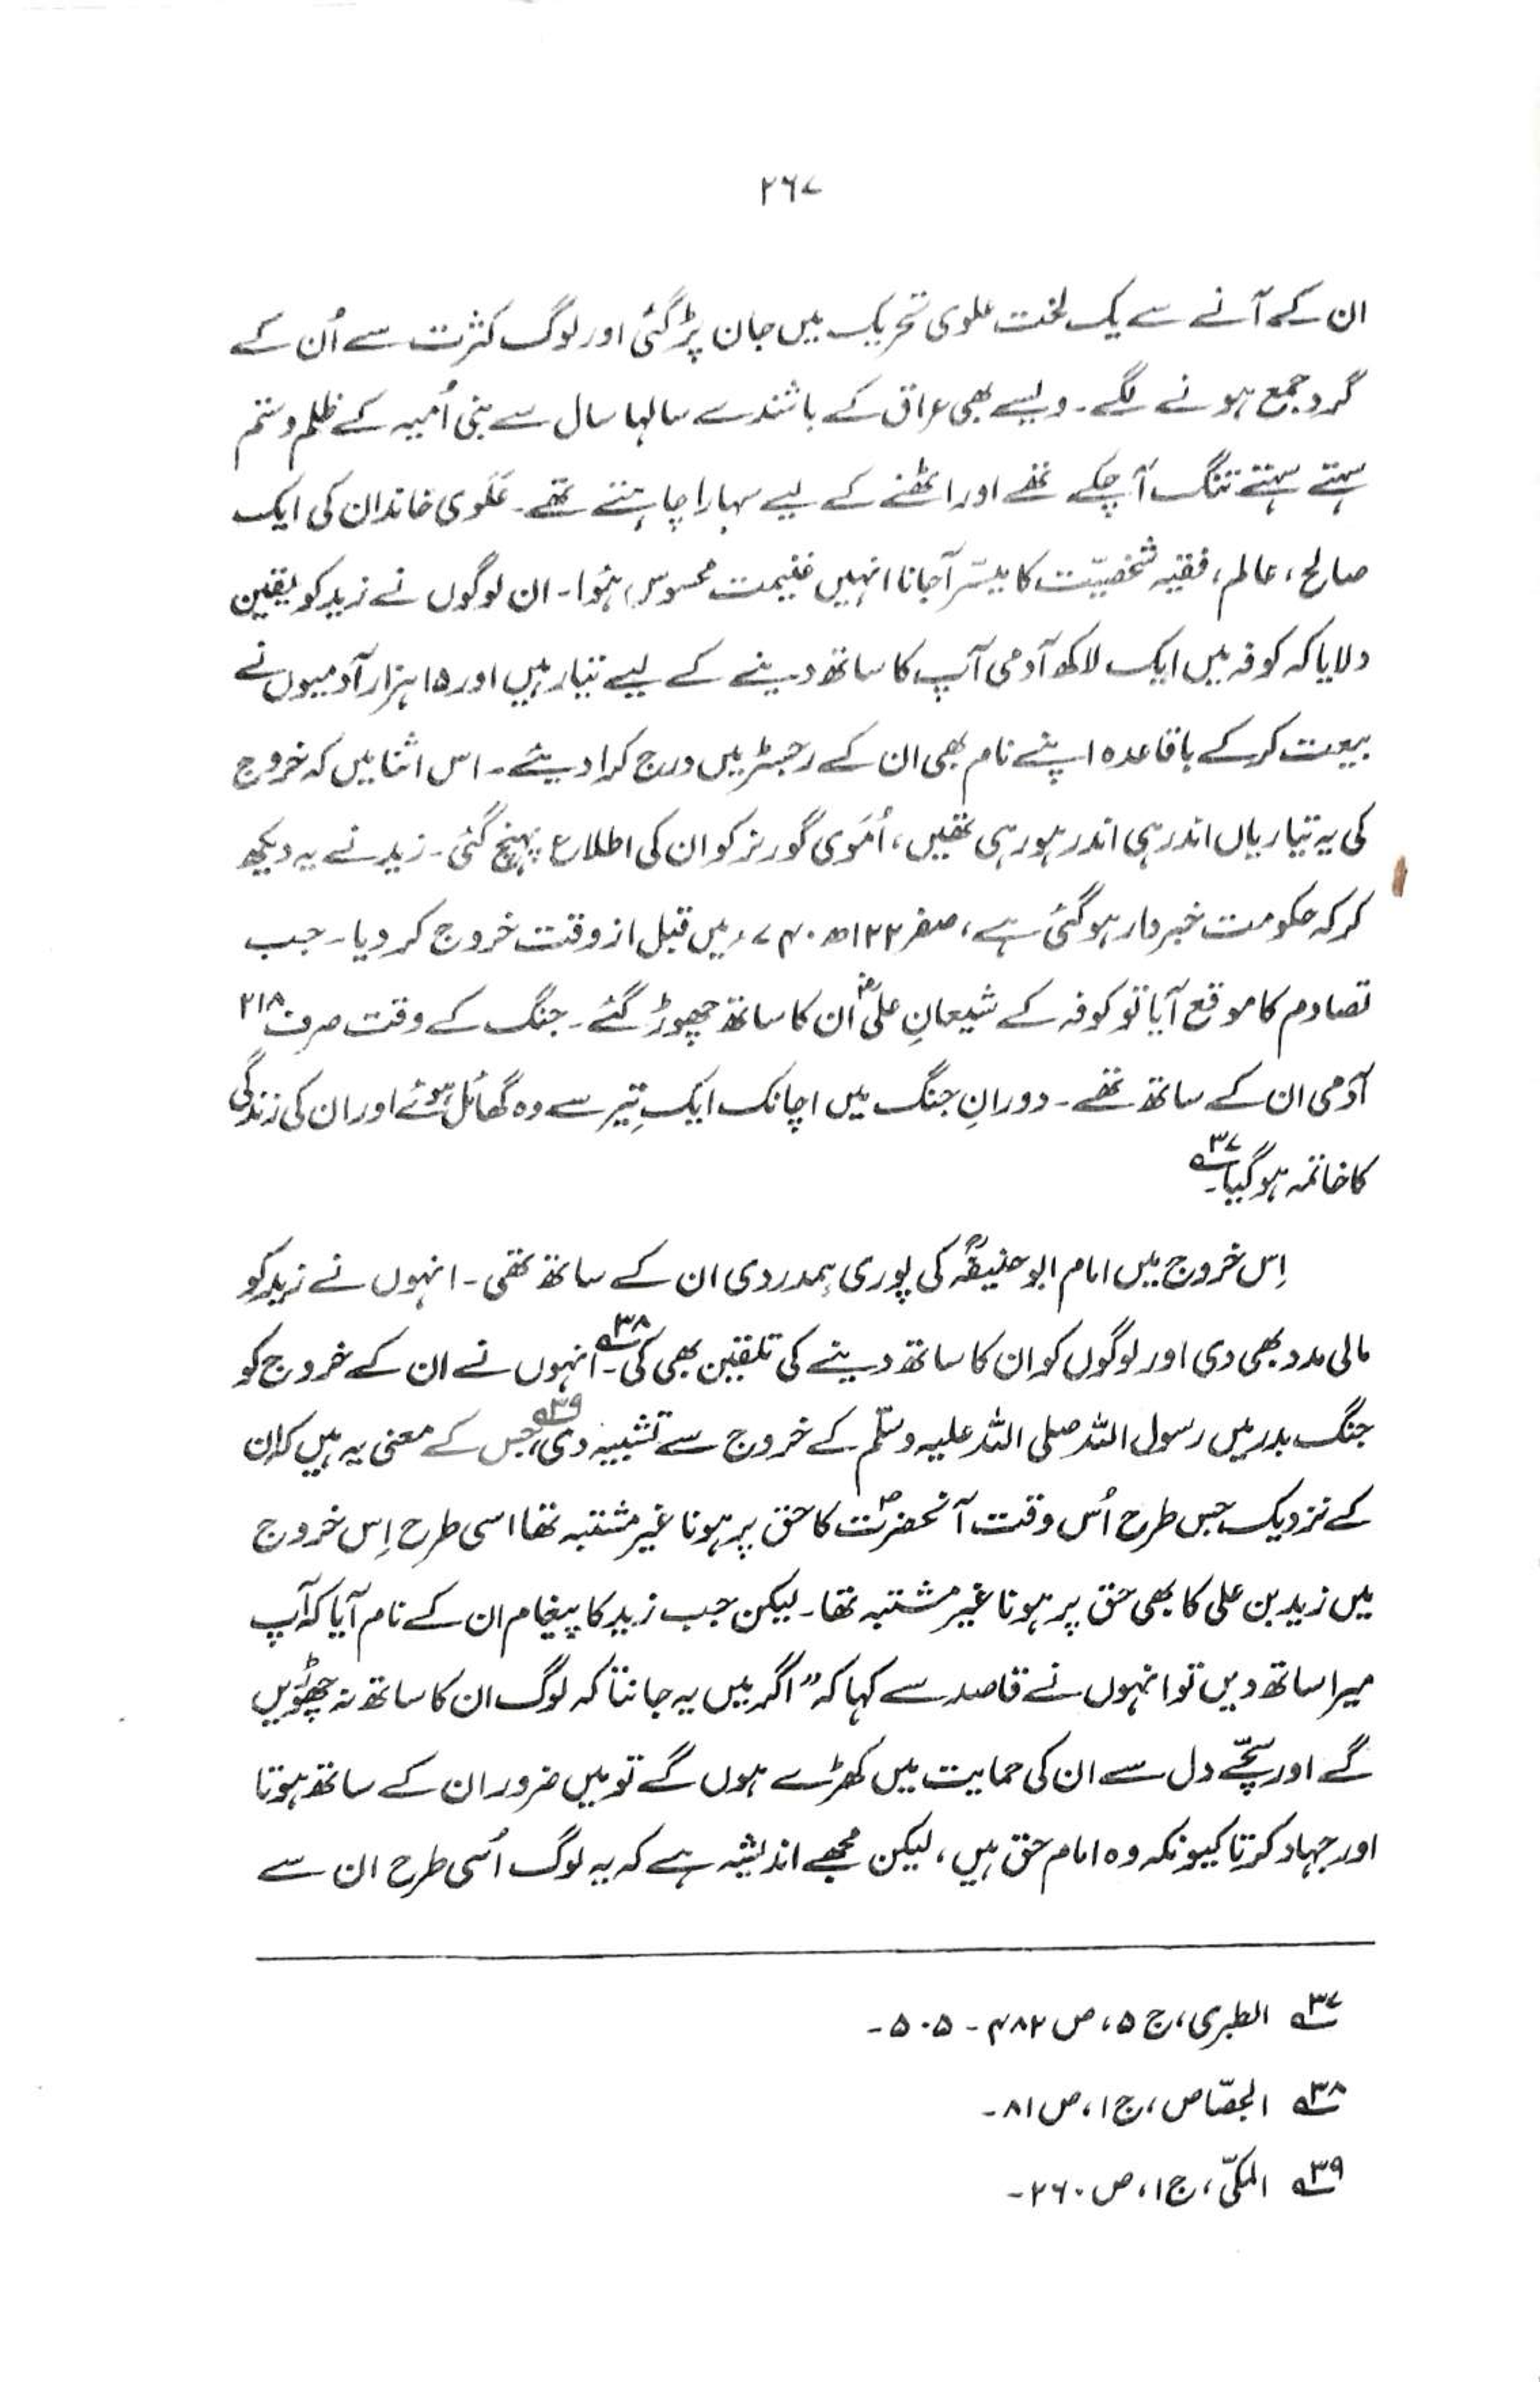 ۲۶۷
ان کے آنے سے یک لخت علوی تحریک میں جان پڑ گئی اور لوگ کثرت سے اُن کے
گرد جمع ہونے لگے۔ ویسے بھی عراق کے باشندے سالہا سال سے بنی اُمیہ کے ظلم و ستم
سہتے سہتے تنگ آ چکے تھے اور اٹھنے کے لیے سہارا چاہتے تھے۔ عَلَوی خاندان کی ایک
صالح، عالم، فقیہ شخصیّت کا میسّر آجانا انہیں غنیمت محسوس ہُوا۔ ان لوگوں نے زید کو یقین
دلایا کہ کوفہ میں ایک لاکھ آدمی آپ کا ساتھ دینے کے لیے تیار ہیں اور ۱۵ ہزار آدمیوں نے
بیعت کرکے باقاعدہ اپنے نام بھی ان کے رجسٹر میں درج کرا دیئے۔ اس اثنا میں کہ خروج
کی یہ تیاریاں اندر ہی اندر ہو رہی تھیں، اُمَوی گورنر کو ان کی اطلاع پہنچ گئی۔ زید نے یہ دیکھ
کر کہ حکومت خبردار ہو گئی ہے، صفر ۱۲۲ھ ۷۴۰ء میں قبل از وقت خروج کر دیا۔ جب
تصادم کا موقع آیا تو کوفہ کے شیعانِ علیؓ ان کا ساتھ چھوڑ گئے۔ جنگ کے وقت صرف ۲۱۸
آدمی ان کے ساتھ تھے۔ دورانِ جنگ میں اچانک ایک تِیر سے وہ گھائل ہوئے اور ان کی زندگی
کا خاتمہ ہو گیا۔ ۳۷؎
اِس خروج میں امام ابو حنیفہؒ کی پوری ہمدردی ان کے ساتھ تھی۔ انہوں نے زید کو
مالی مدد بھی دی اور لوگوں کو ان کا ساتھ دینے کی تلقین بھی کی۔ ۳۸؎ انہوں نے ان کے خروج کو
جنگ بدر میں رسول اللہ صلی اللہ علیہ وسلّم کے خروج سے تشبیہ دی، ۳۹؎ جس کے معنی یہ ہیں کہ ان
کے نزدیک جس طرح اُس وقت آنحضرتؐ کا حق پر ہونا غیر مشتبہ تھا اسی طرح اِس خروج
میں زید بن علی کا بھی حق پر ہونا غیر مشتبہ تھا۔ لیکن جب زید کا پیغام ان کے نام آیا کہ آپ
میرا ساتھ دیں تو انہوں نے قاصد سے کہا کہ ”اگر میں یہ جانتا کہ لوگ ان کا ساتھ نہ چھوڑیں
گے اور سچّے دل سے ان کی حمایت میں کھڑے ہوں گے تو میں ضرور ان کے ساتھ ہوتا
اور جہاد کرتا کیونکہ وہ امام حق ہیں، لیکن مجھے اندیشہ ہے کہ یہ لوگ اُسی طرح ان سے
۳۷؎ الطبری، ج ۵، ص ۴۸۲ - ۵۰۵۔
۳۸؎ الجصّاص، ج ۱، ص ۸۱۔
۳۹؎ المکّی، ج ۱، ص ۲۶۰۔